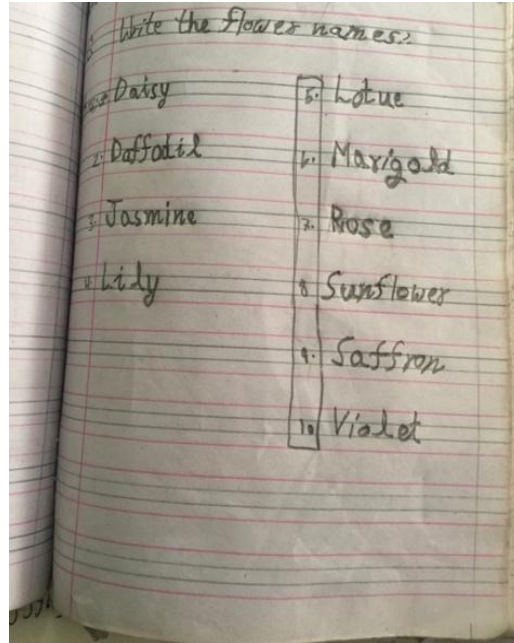 Write the flower names:
1. Daisy
2. Daffodil
3. Jasmine
4. Lidy
5. Lotue
6. Marigold
7. Rose
8 Sunflower
9. Saffron
10 Violet